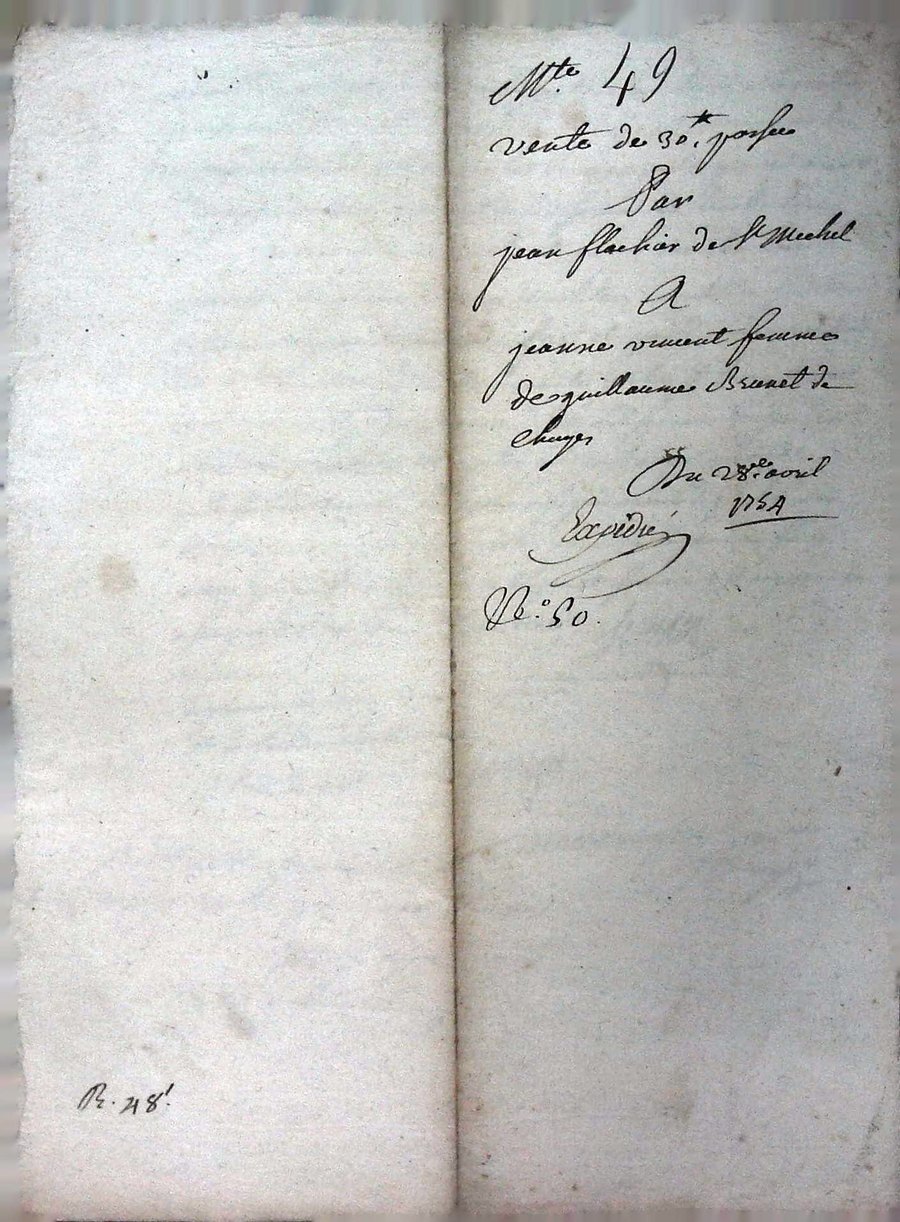 Mte. 49
vente de 30.tt passée
Par
jean flachier de St Michel
A
jeanne vincent femme
de guillaume Brunet de
Chuyer
Du 28e. avril
1754
Expédié
No. 50.
R. 48s.